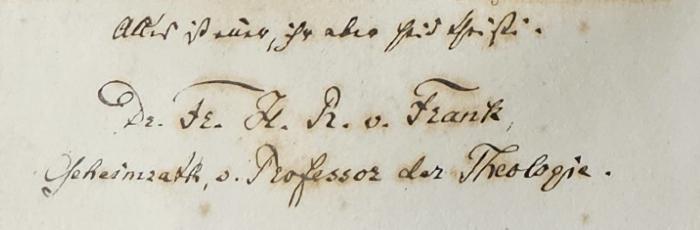 Alles ist euer, ihr aber seid Christi.
Dr. Fr. H. R. v. Frank,
Geheimrath, o. Professor der Theologie.